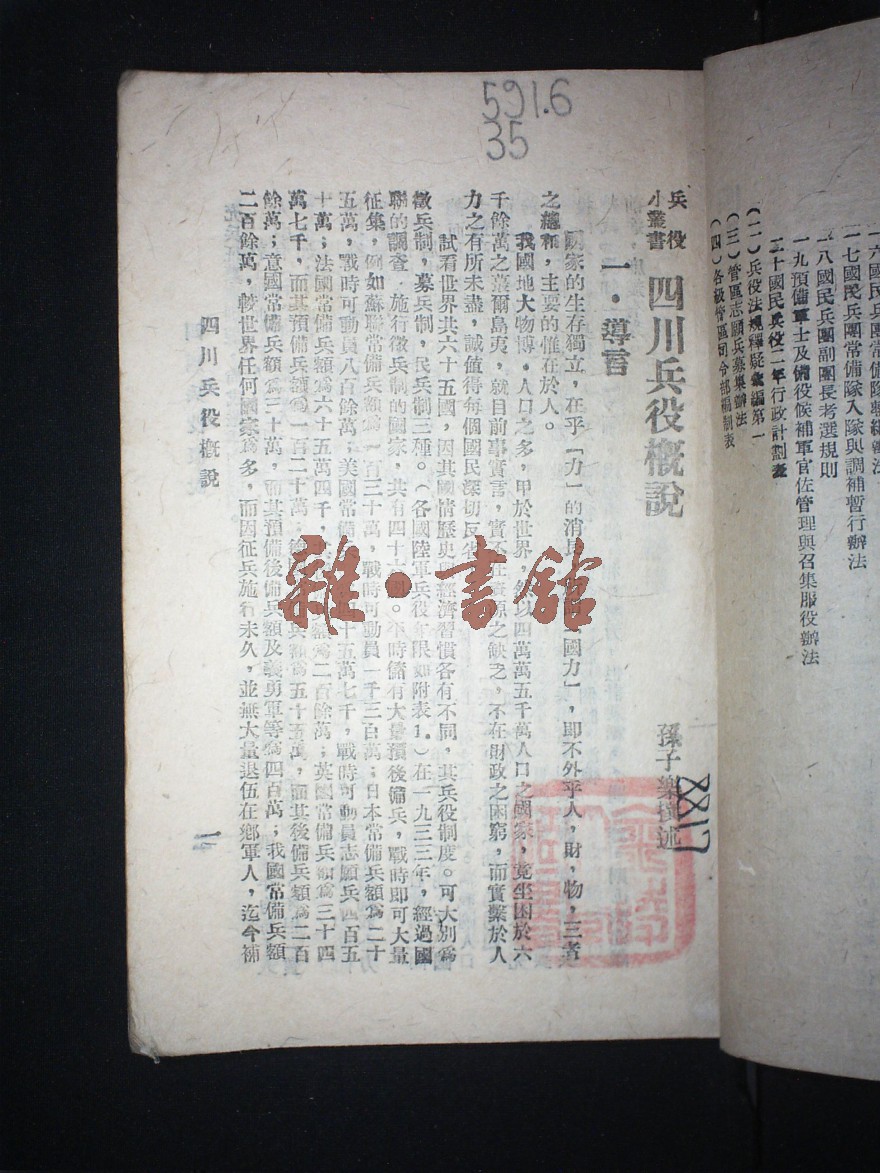 591.6
35
兵役
小叢書
四川兵役概說
孫子樂撰述
8817
一・導言
國家的生存獨立，在乎「力」的消長，國力」，即不外乎人，財，物，三者
之總和，主要的惟在於人。
我國地大物博。人口之多，甲於世界，以四萬萬五千萬人口之國家，竟坐困於六
千餘萬之蕞爾島夷，就目前事實言，實之缺乏，不在財政之困窮，而實繫於人
力之有所未盡，誠值得每個國民深切反省
試看世界共六十五國，因其國情歷史與經濟習慣各有不同，其兵役制度。可大別為
徵兵制，募兵制，民兵制三種。（各國陸軍兵役年限如附表1.）在一九三三年，經過國
聯的調查，施行徵兵制的國家，共有四十國。平時備有大量預後備兵，戰時即可大量
征集，例如蘇聯常備兵額為一百三十萬，戰時可動員一千三百萬；日本常備兵額為二十
五萬，戰時可動員八百餘萬；美國常備十五萬七千，戰時可動員志願兵四百五
十萬；法國常備兵額為六十五萬四千，額為二百餘萬；英國常備兵額為三十四
萬七千，而其預備兵額為一百二十萬；兵額為五十五萬，而其後備兵額為二百
餘萬；意國常備兵額為三十萬，而其預備後備兵額及義勇軍等為四百萬；我國常備兵額
二百餘萬，較世界任何國家為多，而因征兵施行未久，並無大量退伍在鄉軍人，迄今補
四川兵役概說
一
雜・書館
一六國民兵團常備隊整編辦法
一七國民兵團常備隊入隊與調補暫行辦法
一八國民兵團副團長考選規則
一九預備軍士及備役候補軍官佐管理與召集服役辦法
二十國民兵役二年行政計劃表
（二）兵役法規釋疑彙編第一
（三）管區志願兵募集辦法
（四）各級管區司令部編制表